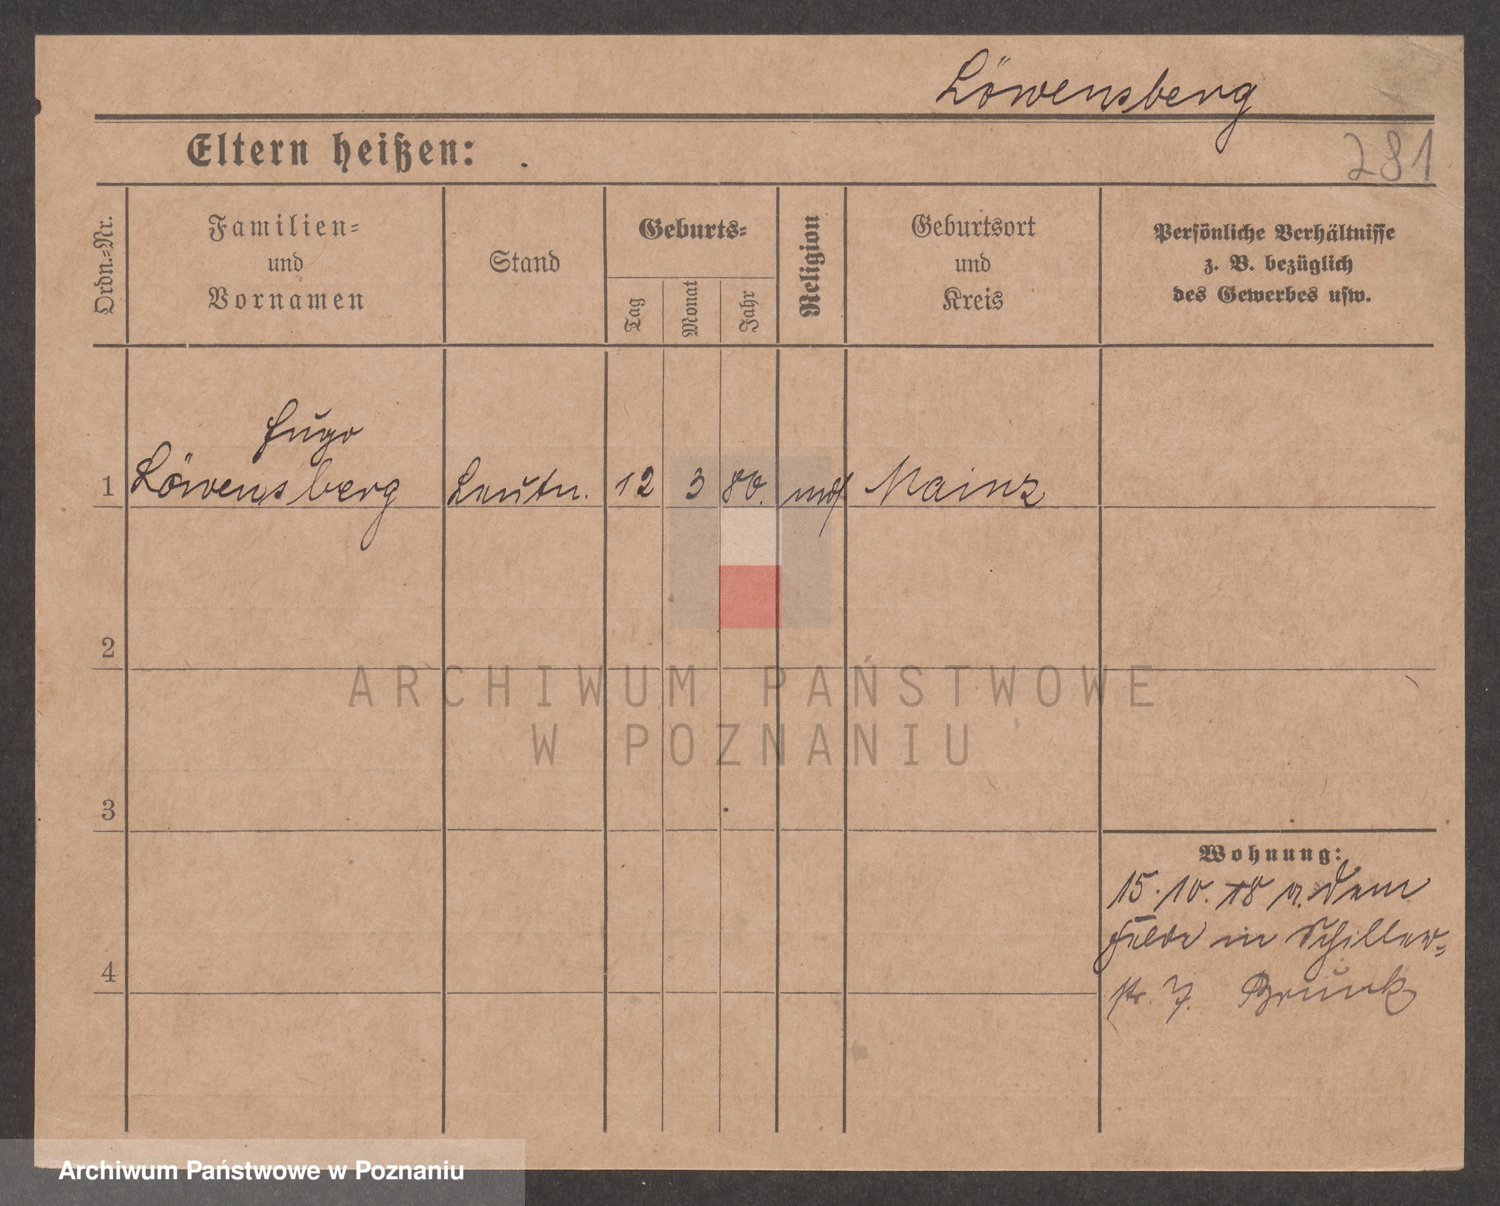 Löwensberg
Eltern heißen:
281
Ordn.-Nr.
Familien-
und
Vornamen
Stand
Geburts-
Tag
Monat
Jahr
Religion
Geburtsort
und
Kreis
Persönliche Verhältnisse
z. B. bezüglich
des Gewerbes usw.
Hugo
1 Löwensberg Leutn. 12 3 80. mos Mainz
2
ARCHIWUM PAŃSTWOWE
W POZNANIU
3
Wohnung:
15.10.18 a. dem
Felde in Schiller-
4
str. 7. Brunk
Archiwum Państwowe w Poznaniu